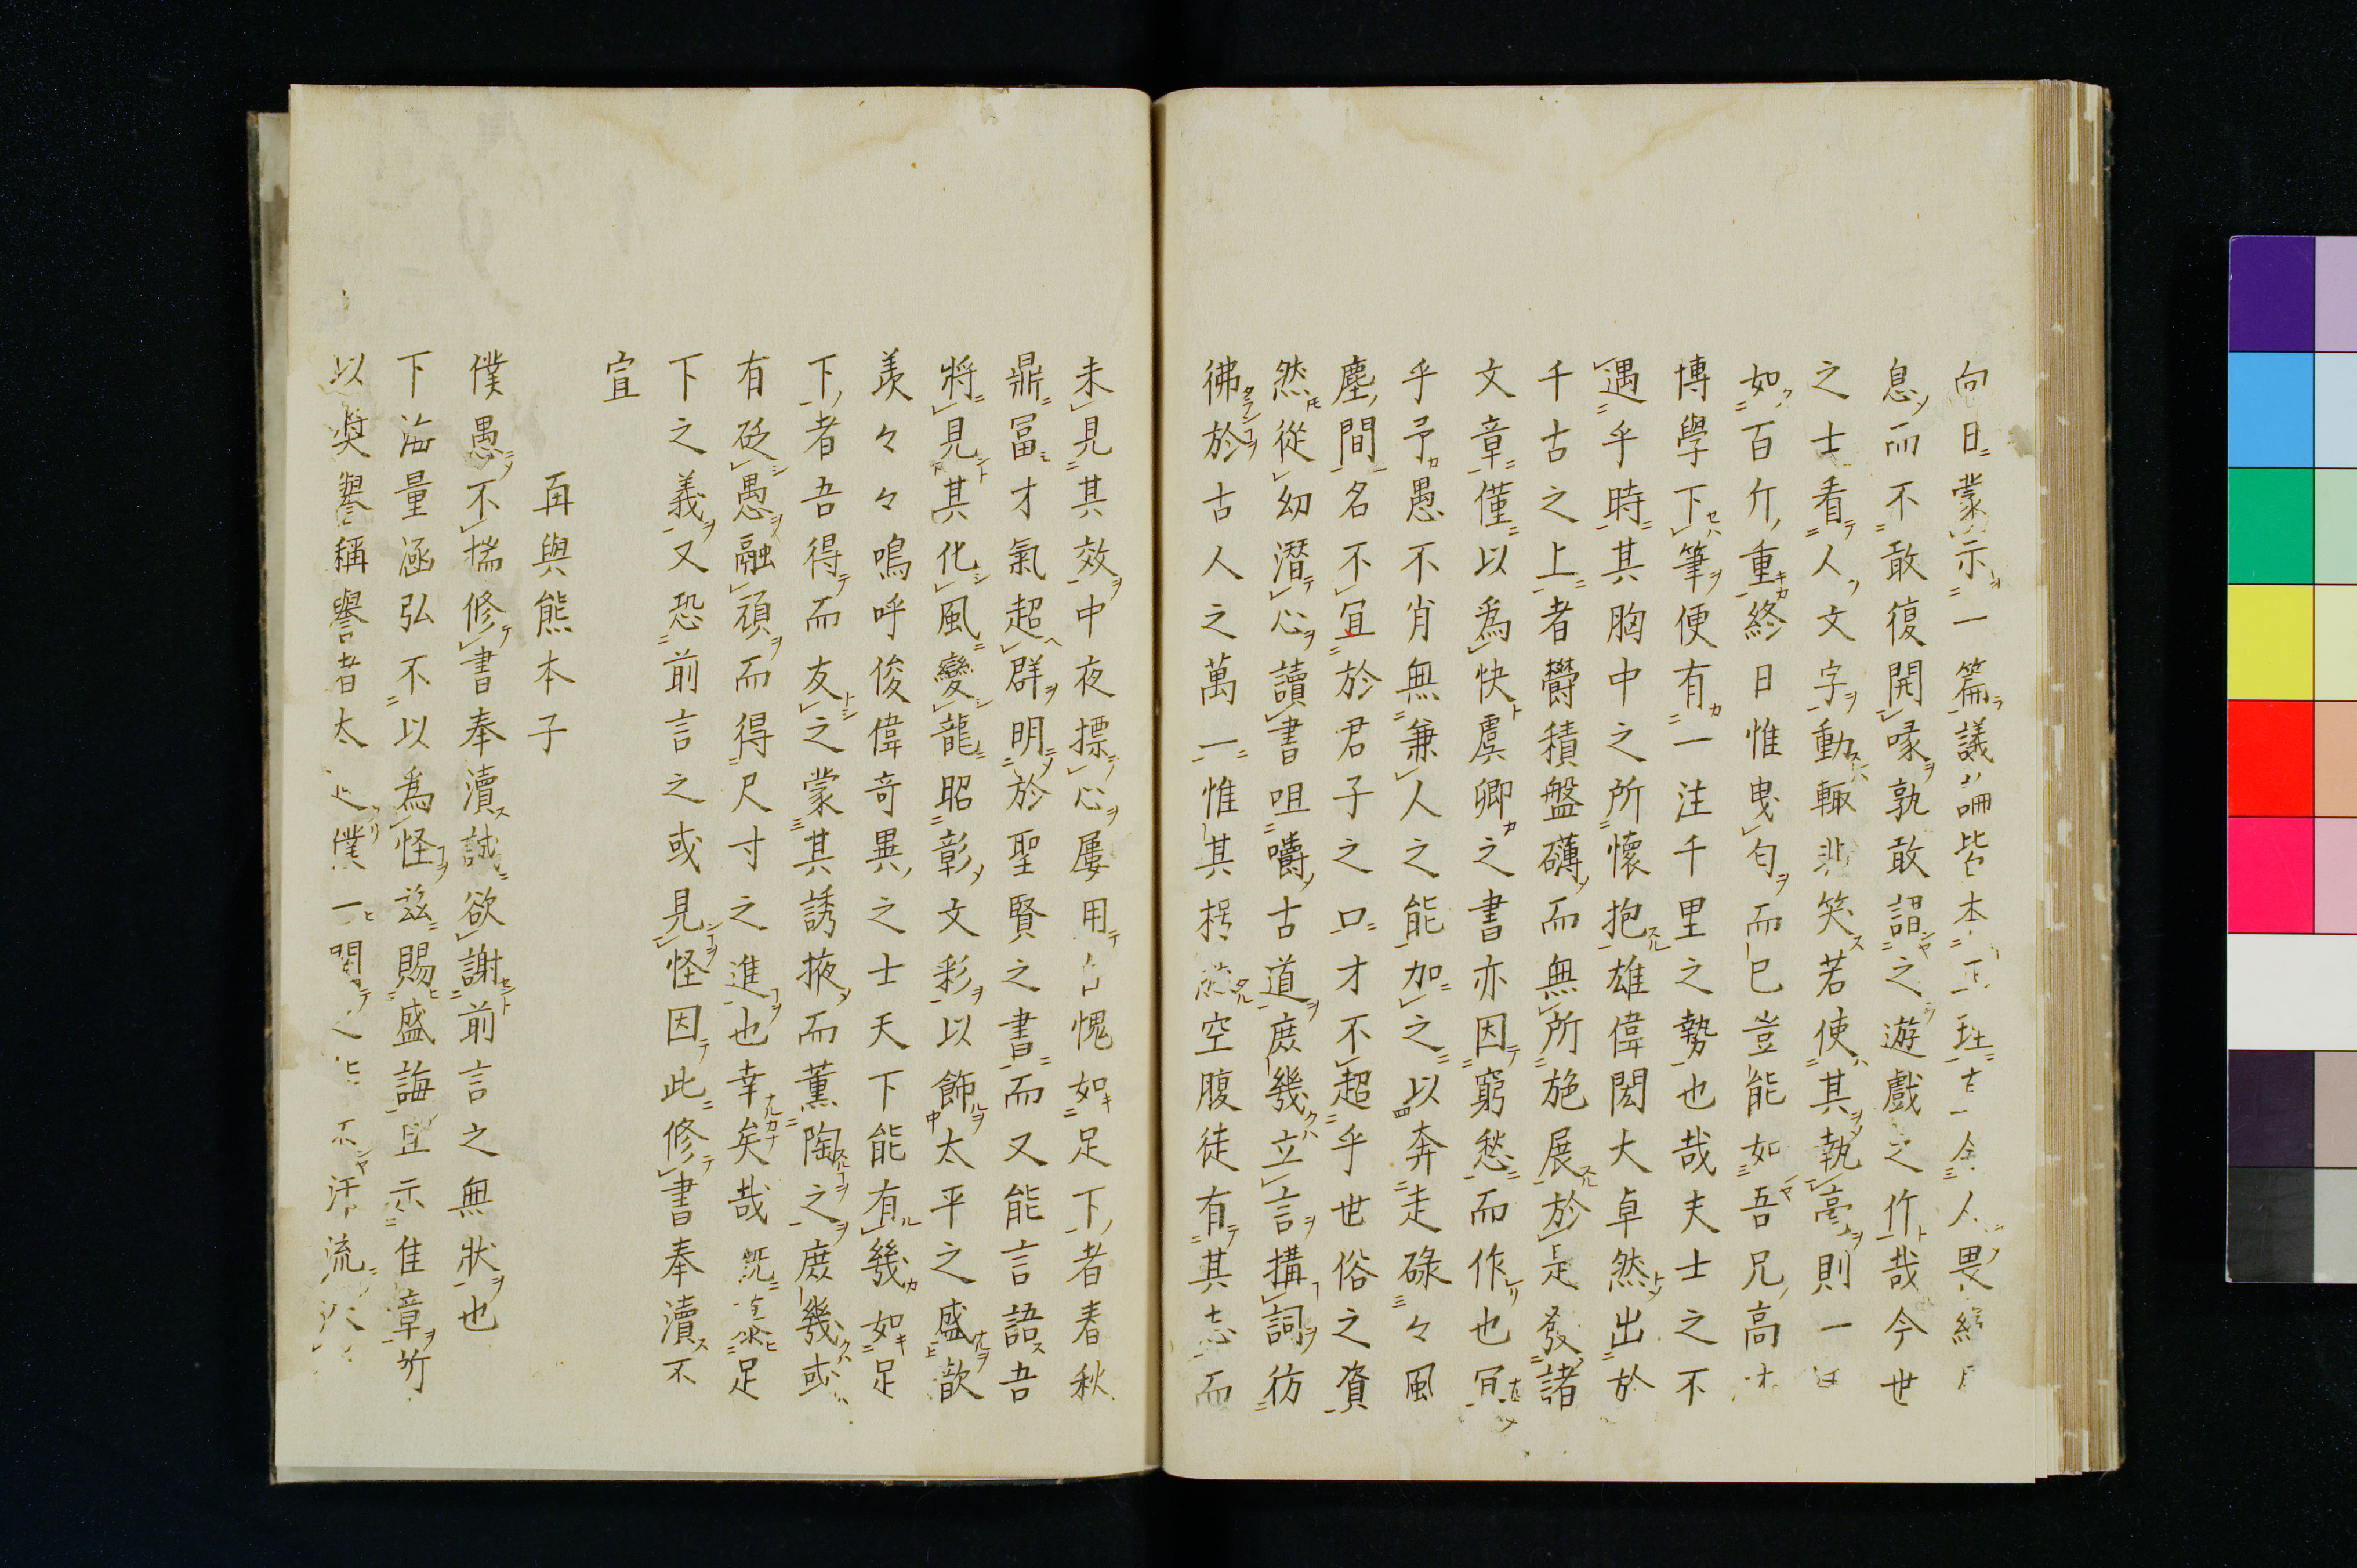 向日蒙示一篇議論皆本正理古今人畏縮
息而不敢復開喙孰敢謂之遊戯之作哉今世
之士看人文字動輒非笑若使其執毫則一
如百斤重終日惟曳句而已豈能如吾兄高才
博學下筆便有一注千里之勢也哉夫士之不
遇乎時其胸中之所懷抱雄偉閎大卓然出於
千古之上者欝積盤礴而無所施展於是發諸
文章僅以爲快虞卿之書亦因窮愁而作也
乎予愚不肖無兼人之能加之以奔走碌々風
塵間名不宜於君子之口才不超乎世俗之資
然從幼潜心讀書咀嚼古道庻幾立言搆詞彷
彿於古人之萬一惟其枵然空腹徒有其志而
未見其效中夜摽心屢用自愧如足下者春秋
鼎冨才氣超群明於聖賢之書而又能言語吾
將見其化風變龍昭彰文彩以飾太平之盛歆
羨々々鳴呼俊偉竒異之士天下能有幾如足
下者吾得而友之蒙其誘掖而薫陶之庻幾或
有砭愚融頑而得尺寸之進也幸矣哉既辱足
下之義又恐前言之或見怪因此修書奉瀆不
宣
再與熊本子
僕愚不揣修書奉瀆誠欲謝前言之無狀也
下海量涵弘不以爲怪茲賜盛誨且示佳章所
以奬譽稱譽者太過僕一聞之能不汗流